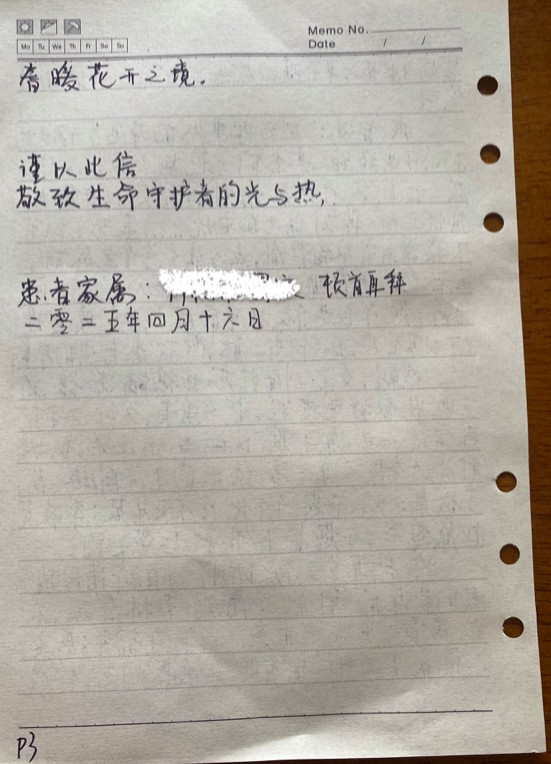 Memo No.
Mo Tu We Th Fr Sa Su
Date / /
春暖花开之境.
谨以此信
敬致生命守护者的光与热,
患者家属: 顿首再拜
二零二五年四月十六日
P3